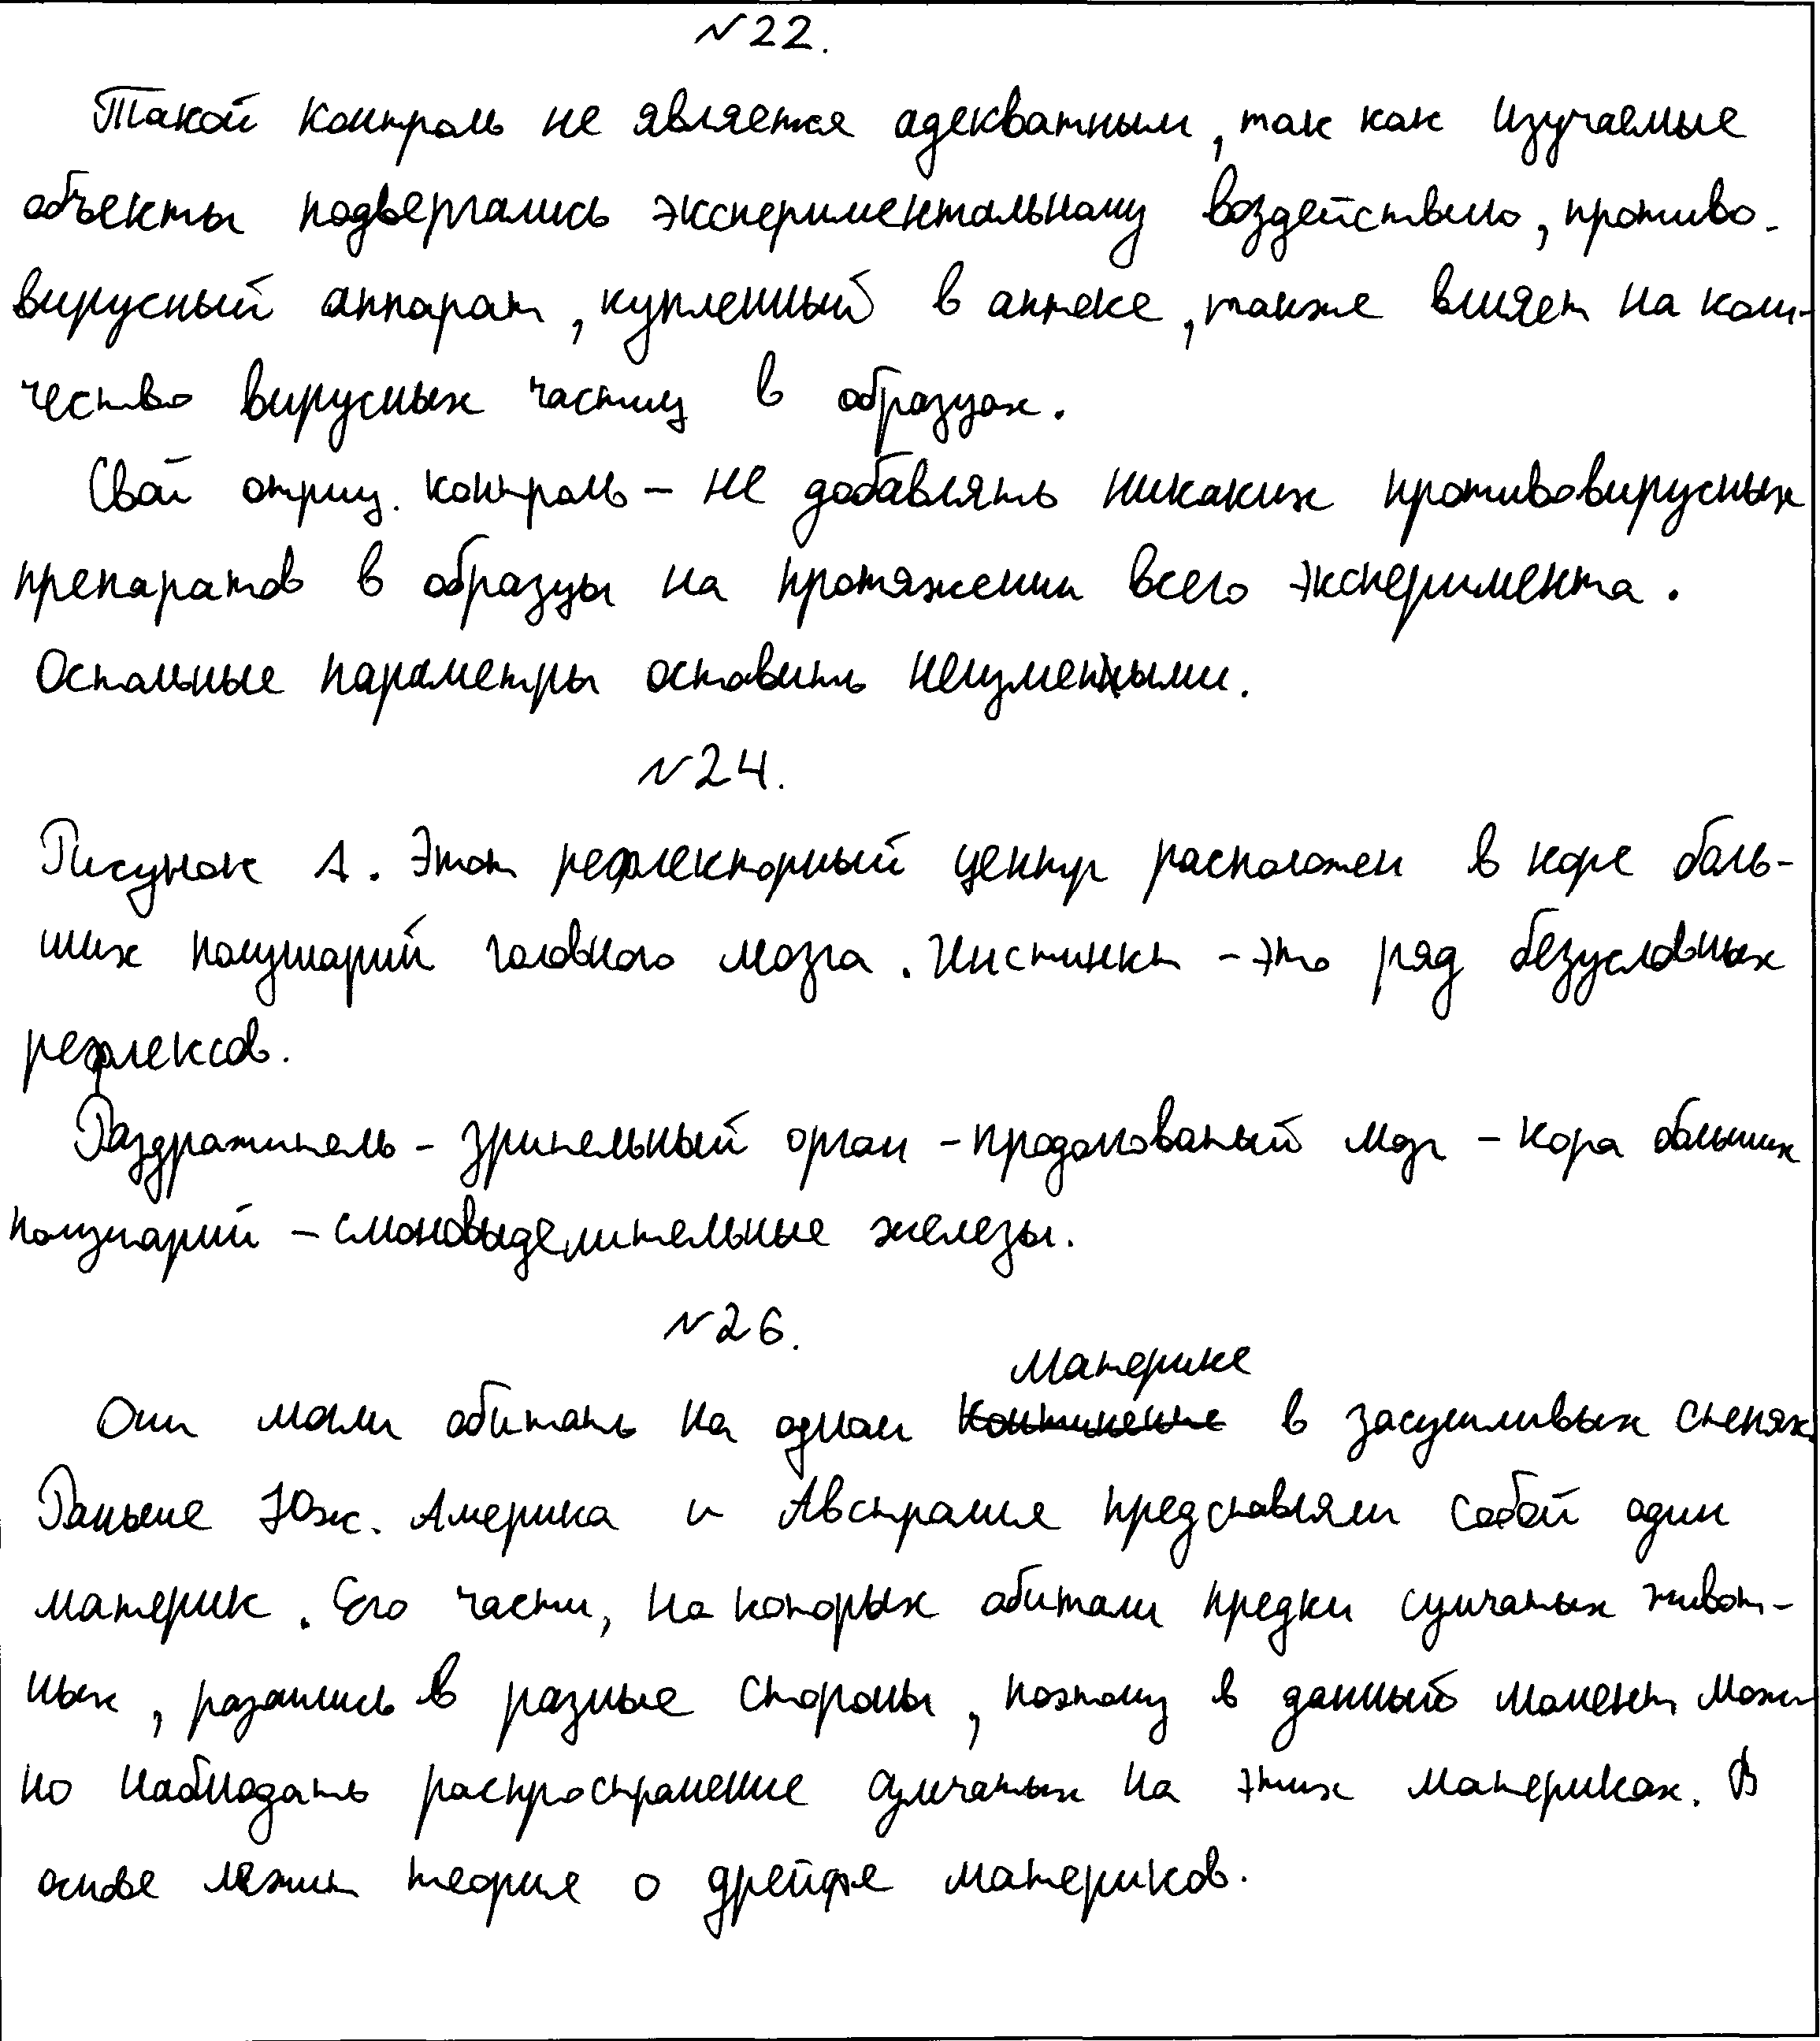 №22.
Такой контроль не является адекватным, так как изучаемые
объекты подвергались экспериментальному воздействию, противо-
вирусный аппарат, купленный в аптеке, также влияет на коли-
чество вирусных частиц в образцах.
Свой отриц. контроль – не добавлять никаких противовирусных
препаратов в образцы на протяжении всего эксперимента.
Остальные параметры оставить неизменными.
№24.
Рисунок А. Этот рефлекторный центр расположен в коре боль-
ших полушарий головного мозга. Инстинкт – это ряд безусловных
рефлексов.
Раздражитель – зрительный орган – продолговатый мозг – кора больших
полушарий – слюновыделительные железы.
№26.
Материке
Они могли обитать на одном континенте в засушливых степях.
Раньше Юж. Америка и Австралия представляли собой один
материк. Его части, на которых обитали предки сумчатых живот-
ных, разошлись в разные стороны, поэтому в данный момент мож-
но наблюдать распространение сумчатых на этих материках. В
основе лежит теория о дрейфе материков.